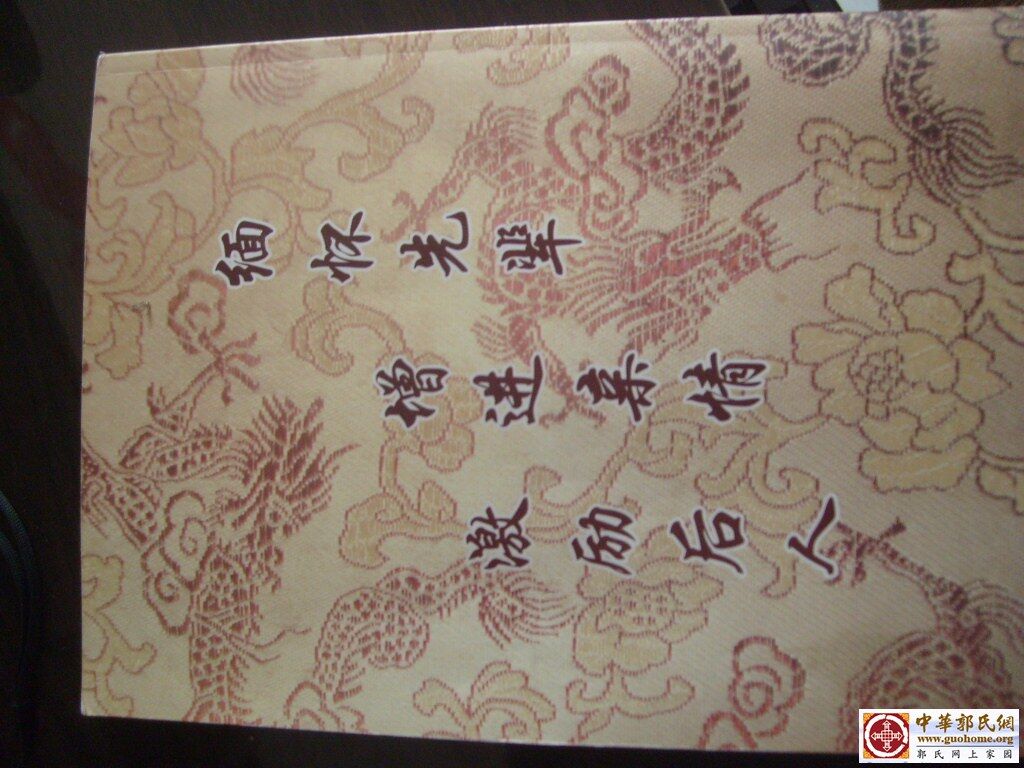 缅怀先辈
增进亲情
激励后人
中華郭氏網
www.guohome.org
郭氏网上家园